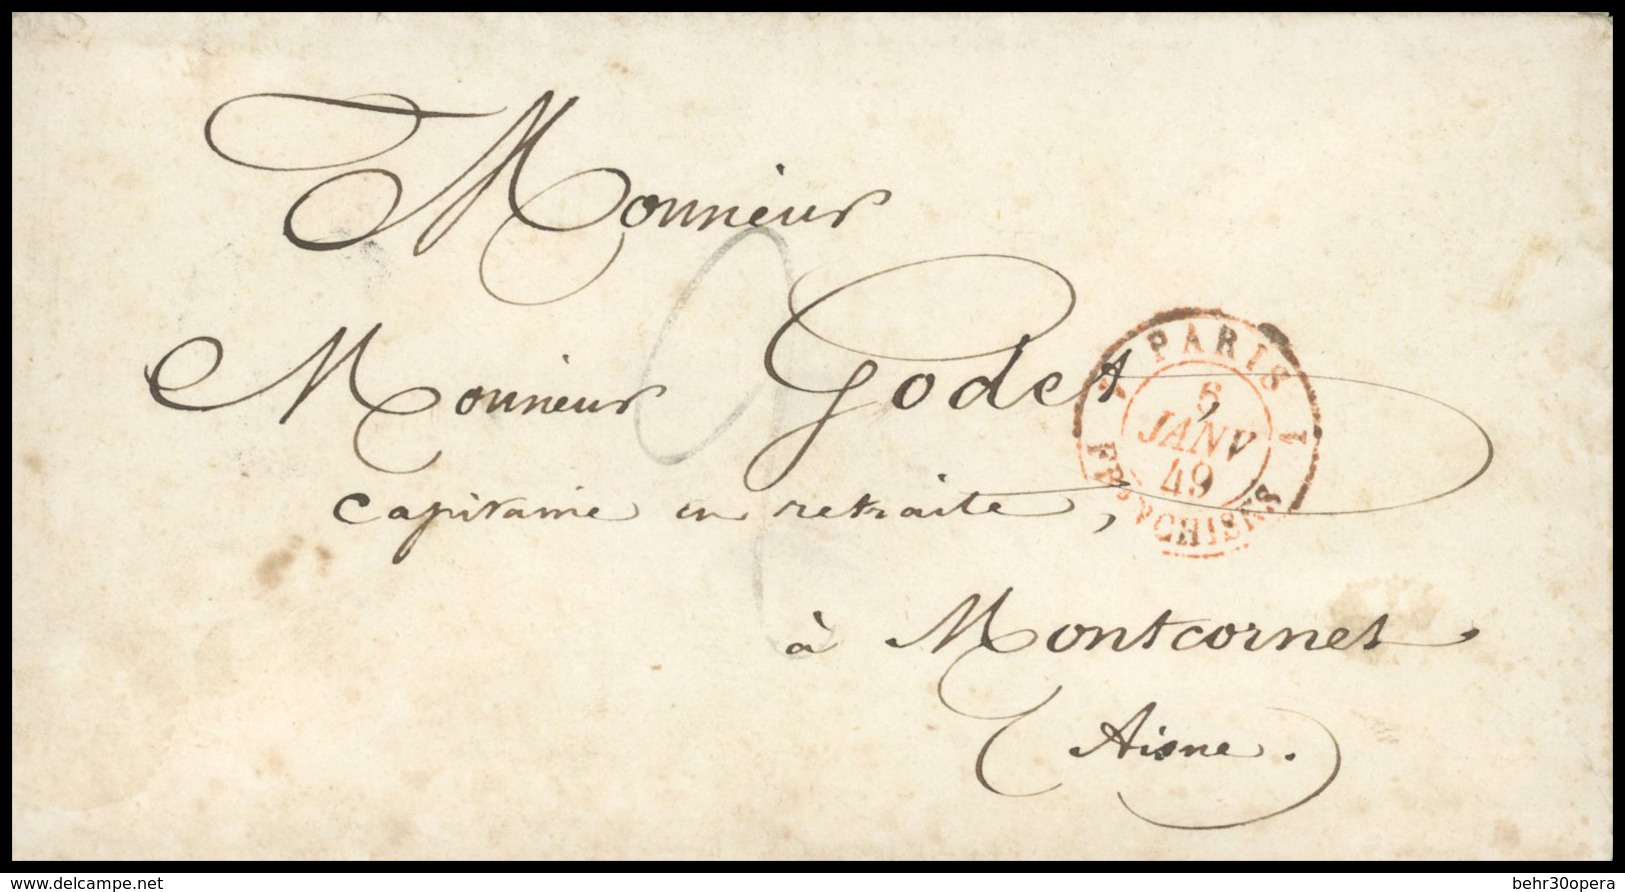 Monsieur
Monsieur Godet,
Capitaine en retraite,
à Montcornet
Aisne.
PARIS
6
JANV
49
FRANCHISES
delcampe.net
behr30opera